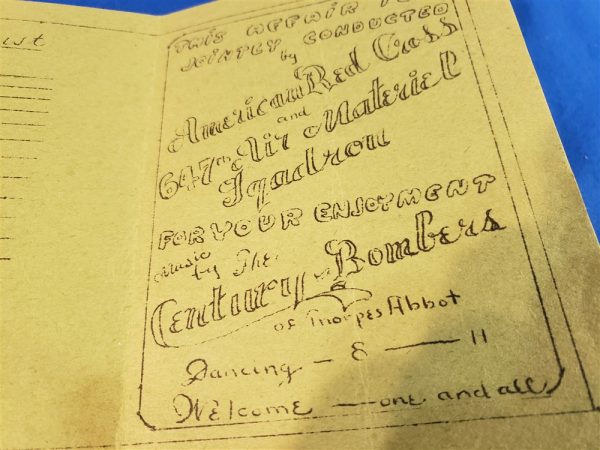 ist
THIS AFFAIR IS
JOINTLY CONDUCTED
by
American Red Cross
and
647th Air Materiel
Squadron
FOR YOUR ENJOYMENT
Music
by The
Century Bombers
of Thorpes Abbot
Dancing — 8 — 11
Welcome — one and all